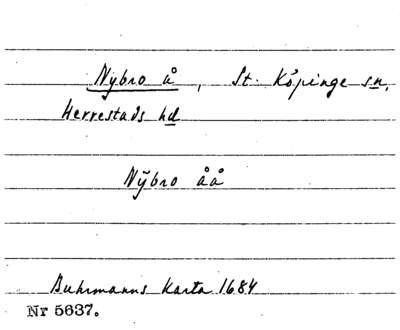 Nybro å, St. Köpinge sn,
Herrestads hd
Nÿbro åå
Buhrmanns Karta 1684
Nr 5637.